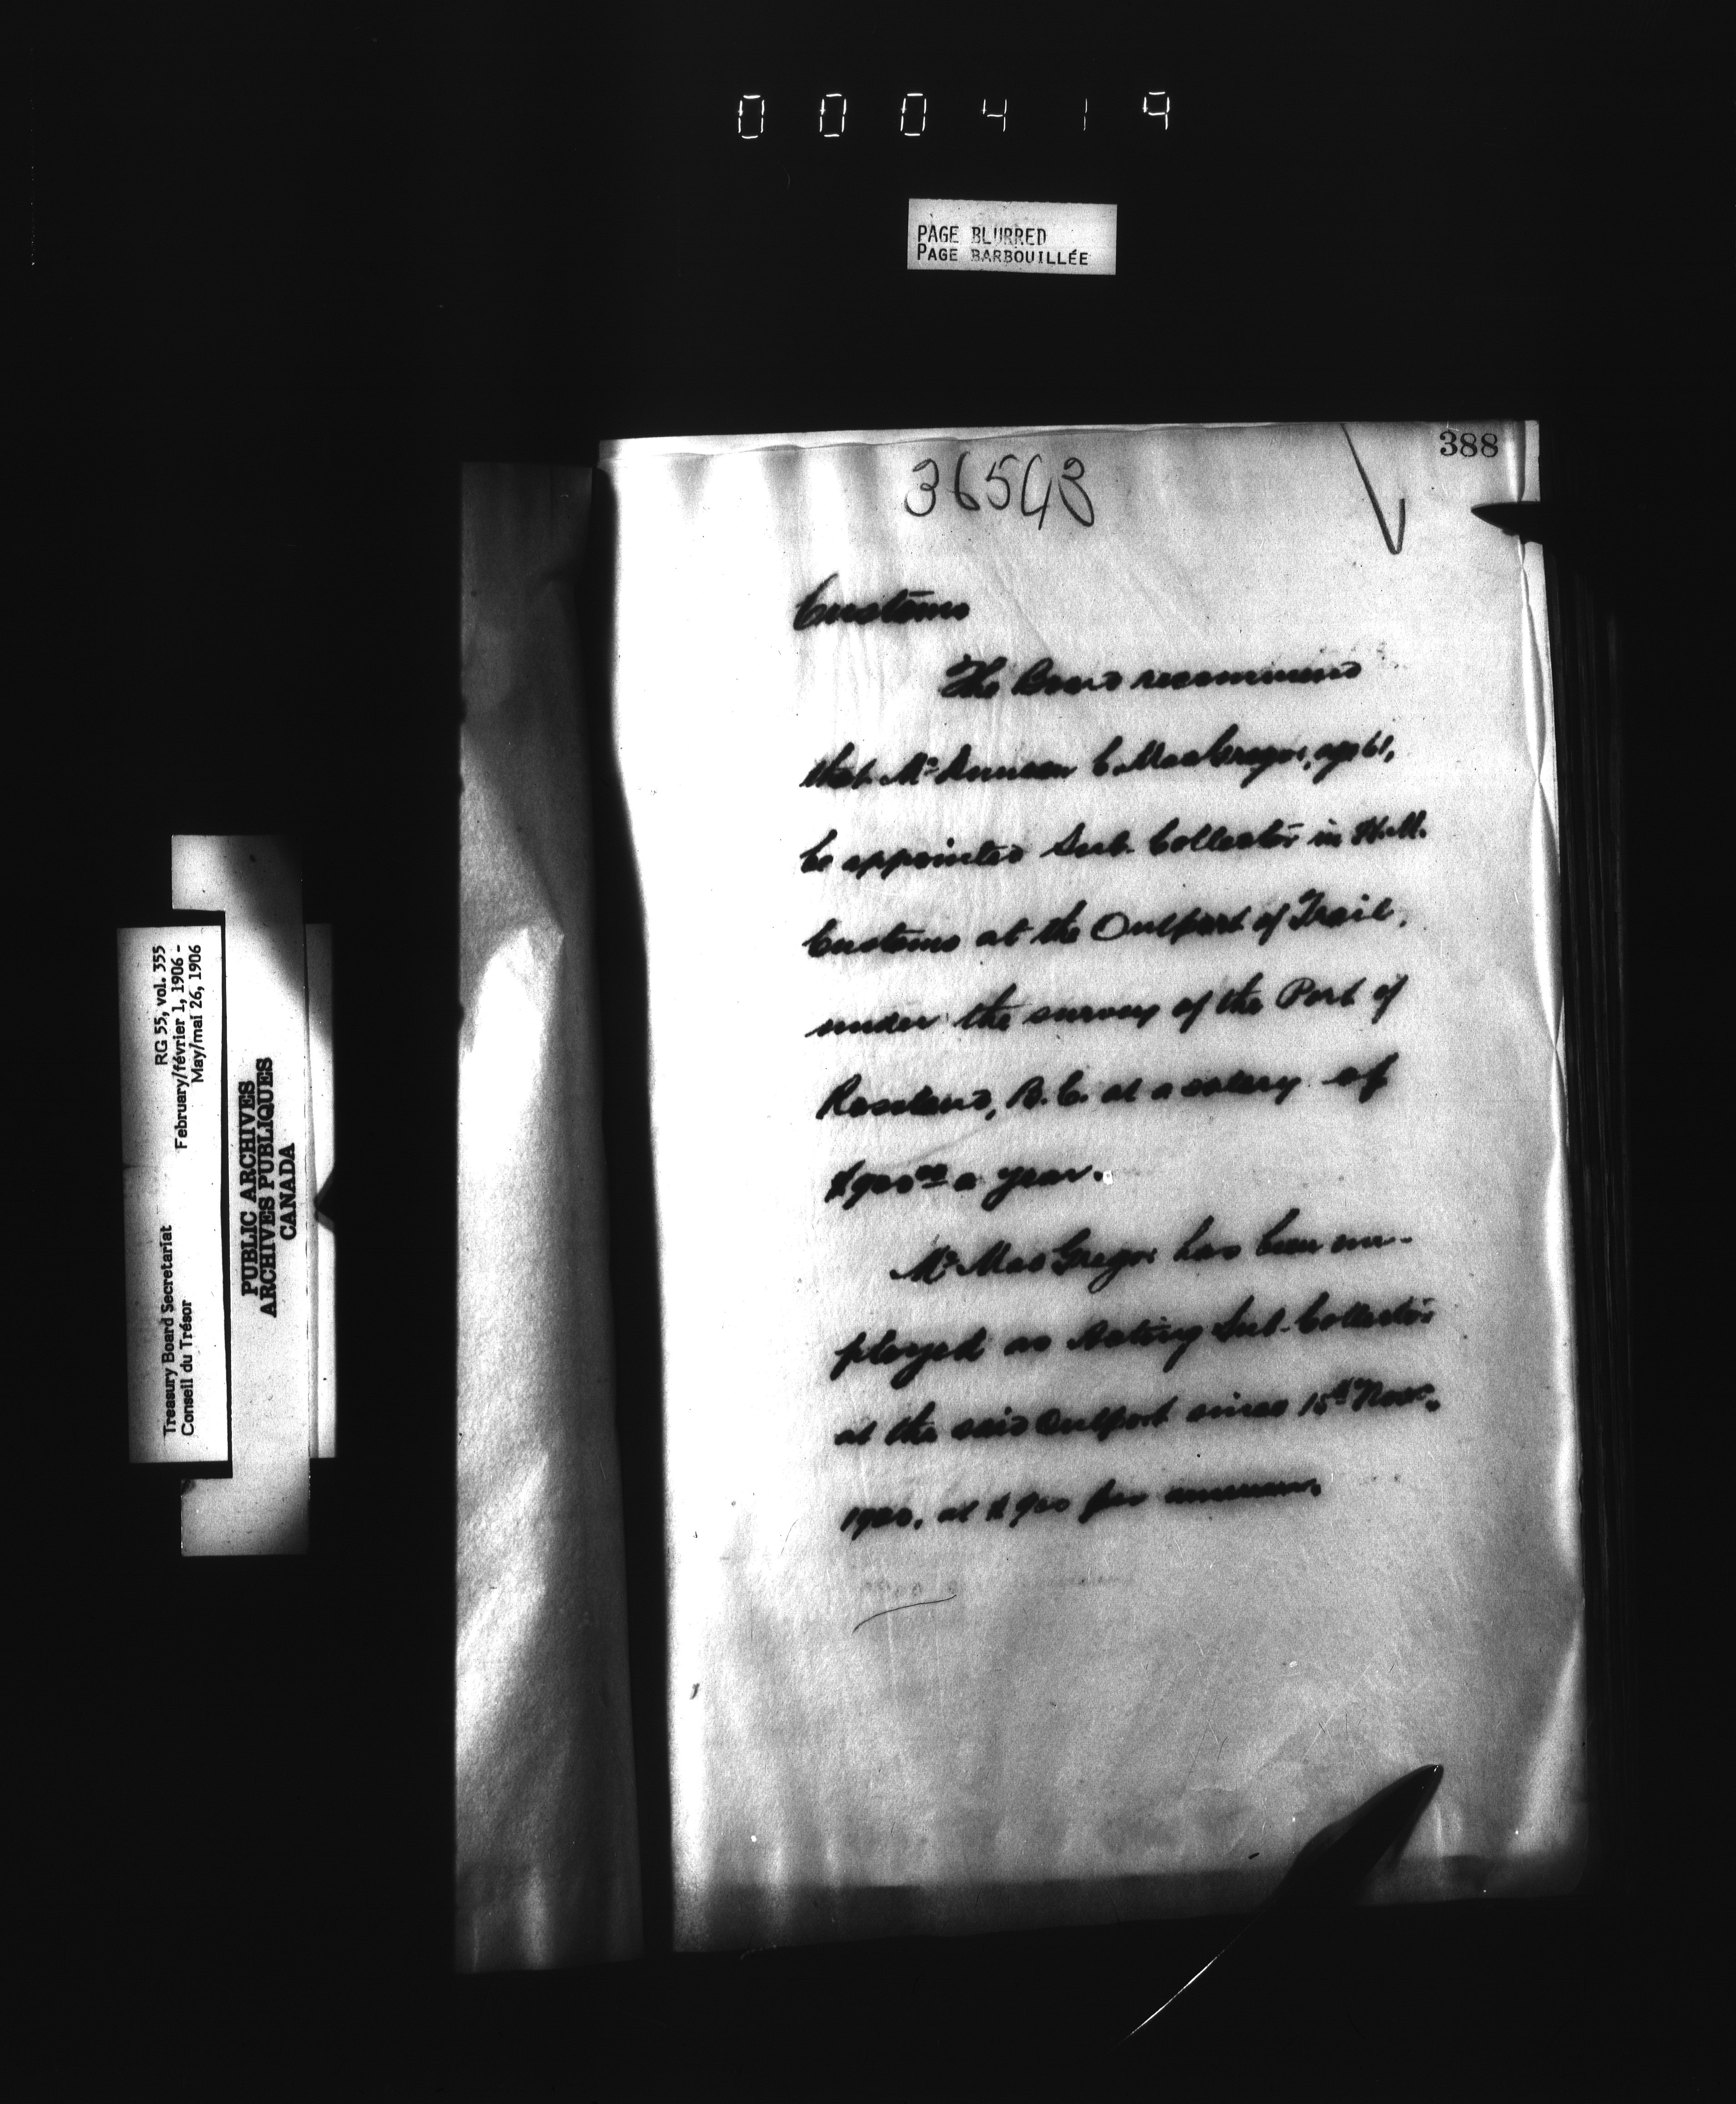 000419
PAGE BLURRED
PAGE BARBOUILLÉE
388
36543
Customs
The Board recommend
that Mr Duncan C. MacGregor, age 61,
be appointed Sub-Collector in H.M.
Customs at the Outport of Trail,
under the survey of the Port of
Rossland, B.C. at a salary of
$900.00 a year.
Mr MacGregor has been em-
ployed as Acting Sub-Collector
at the said Outport since 15th Novr.,
1900, at $900 per annum.
Treasury Board Secretariat RG 55, vol. 355
Conseil du Trésor February/février 1, 1906 -
May/mai 26, 1906
PUBLIC ARCHIVES
ARCHIVES PUBLIQUES
CANADA